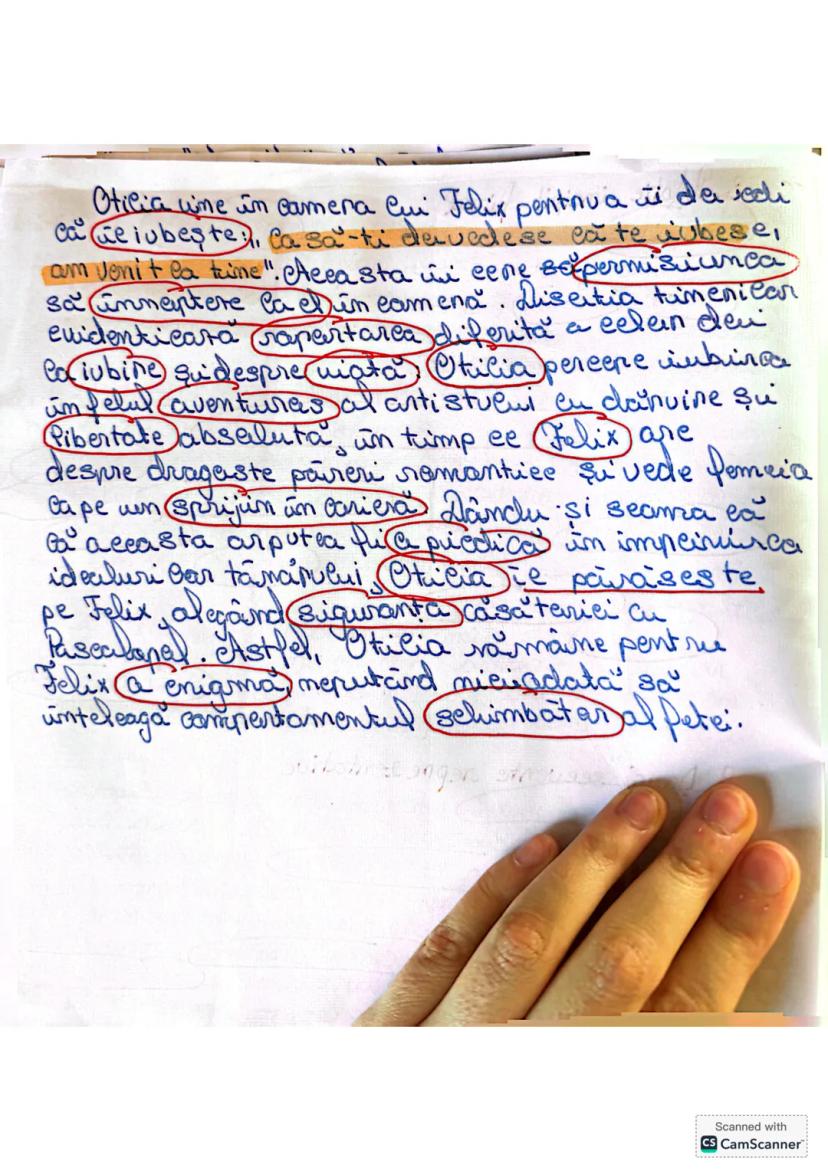 Otilia vine în camera lui Felix pentru a îi dovedi
că îl iubește: „Ca să-ți dovedesc că te iubesc,
am venit la tine". Aceasta îi cere permisiunea
să înnopteze la el în cameră. Discuția tinerilor
evidențiează raportarea diferită a celor doi
la iubire și despre viață. Otilia percepe iubirea
în felul aventuros al artistului cu dăruire și
libertate absolută, în timp ce Felix are
despre dragoste păreri romantice și vede femeia
ca pe un sprijin în carieră. Dându-și seama că
că aceasta ar putea fi o piedică în împlinirea
idealurilor tânărului, Otilia îl părăsește
pe Felix, alegând siguranța căsătoriei cu
Pascalopol. Astfel, Otilia rămâne pentru
Felix o enigmă, neputând niciodată să
înțeleagă comportamentul schimbător al fetei.
Scanned with
CS CamScanner